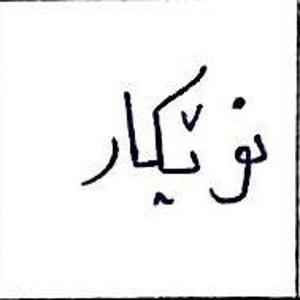 نوێکار